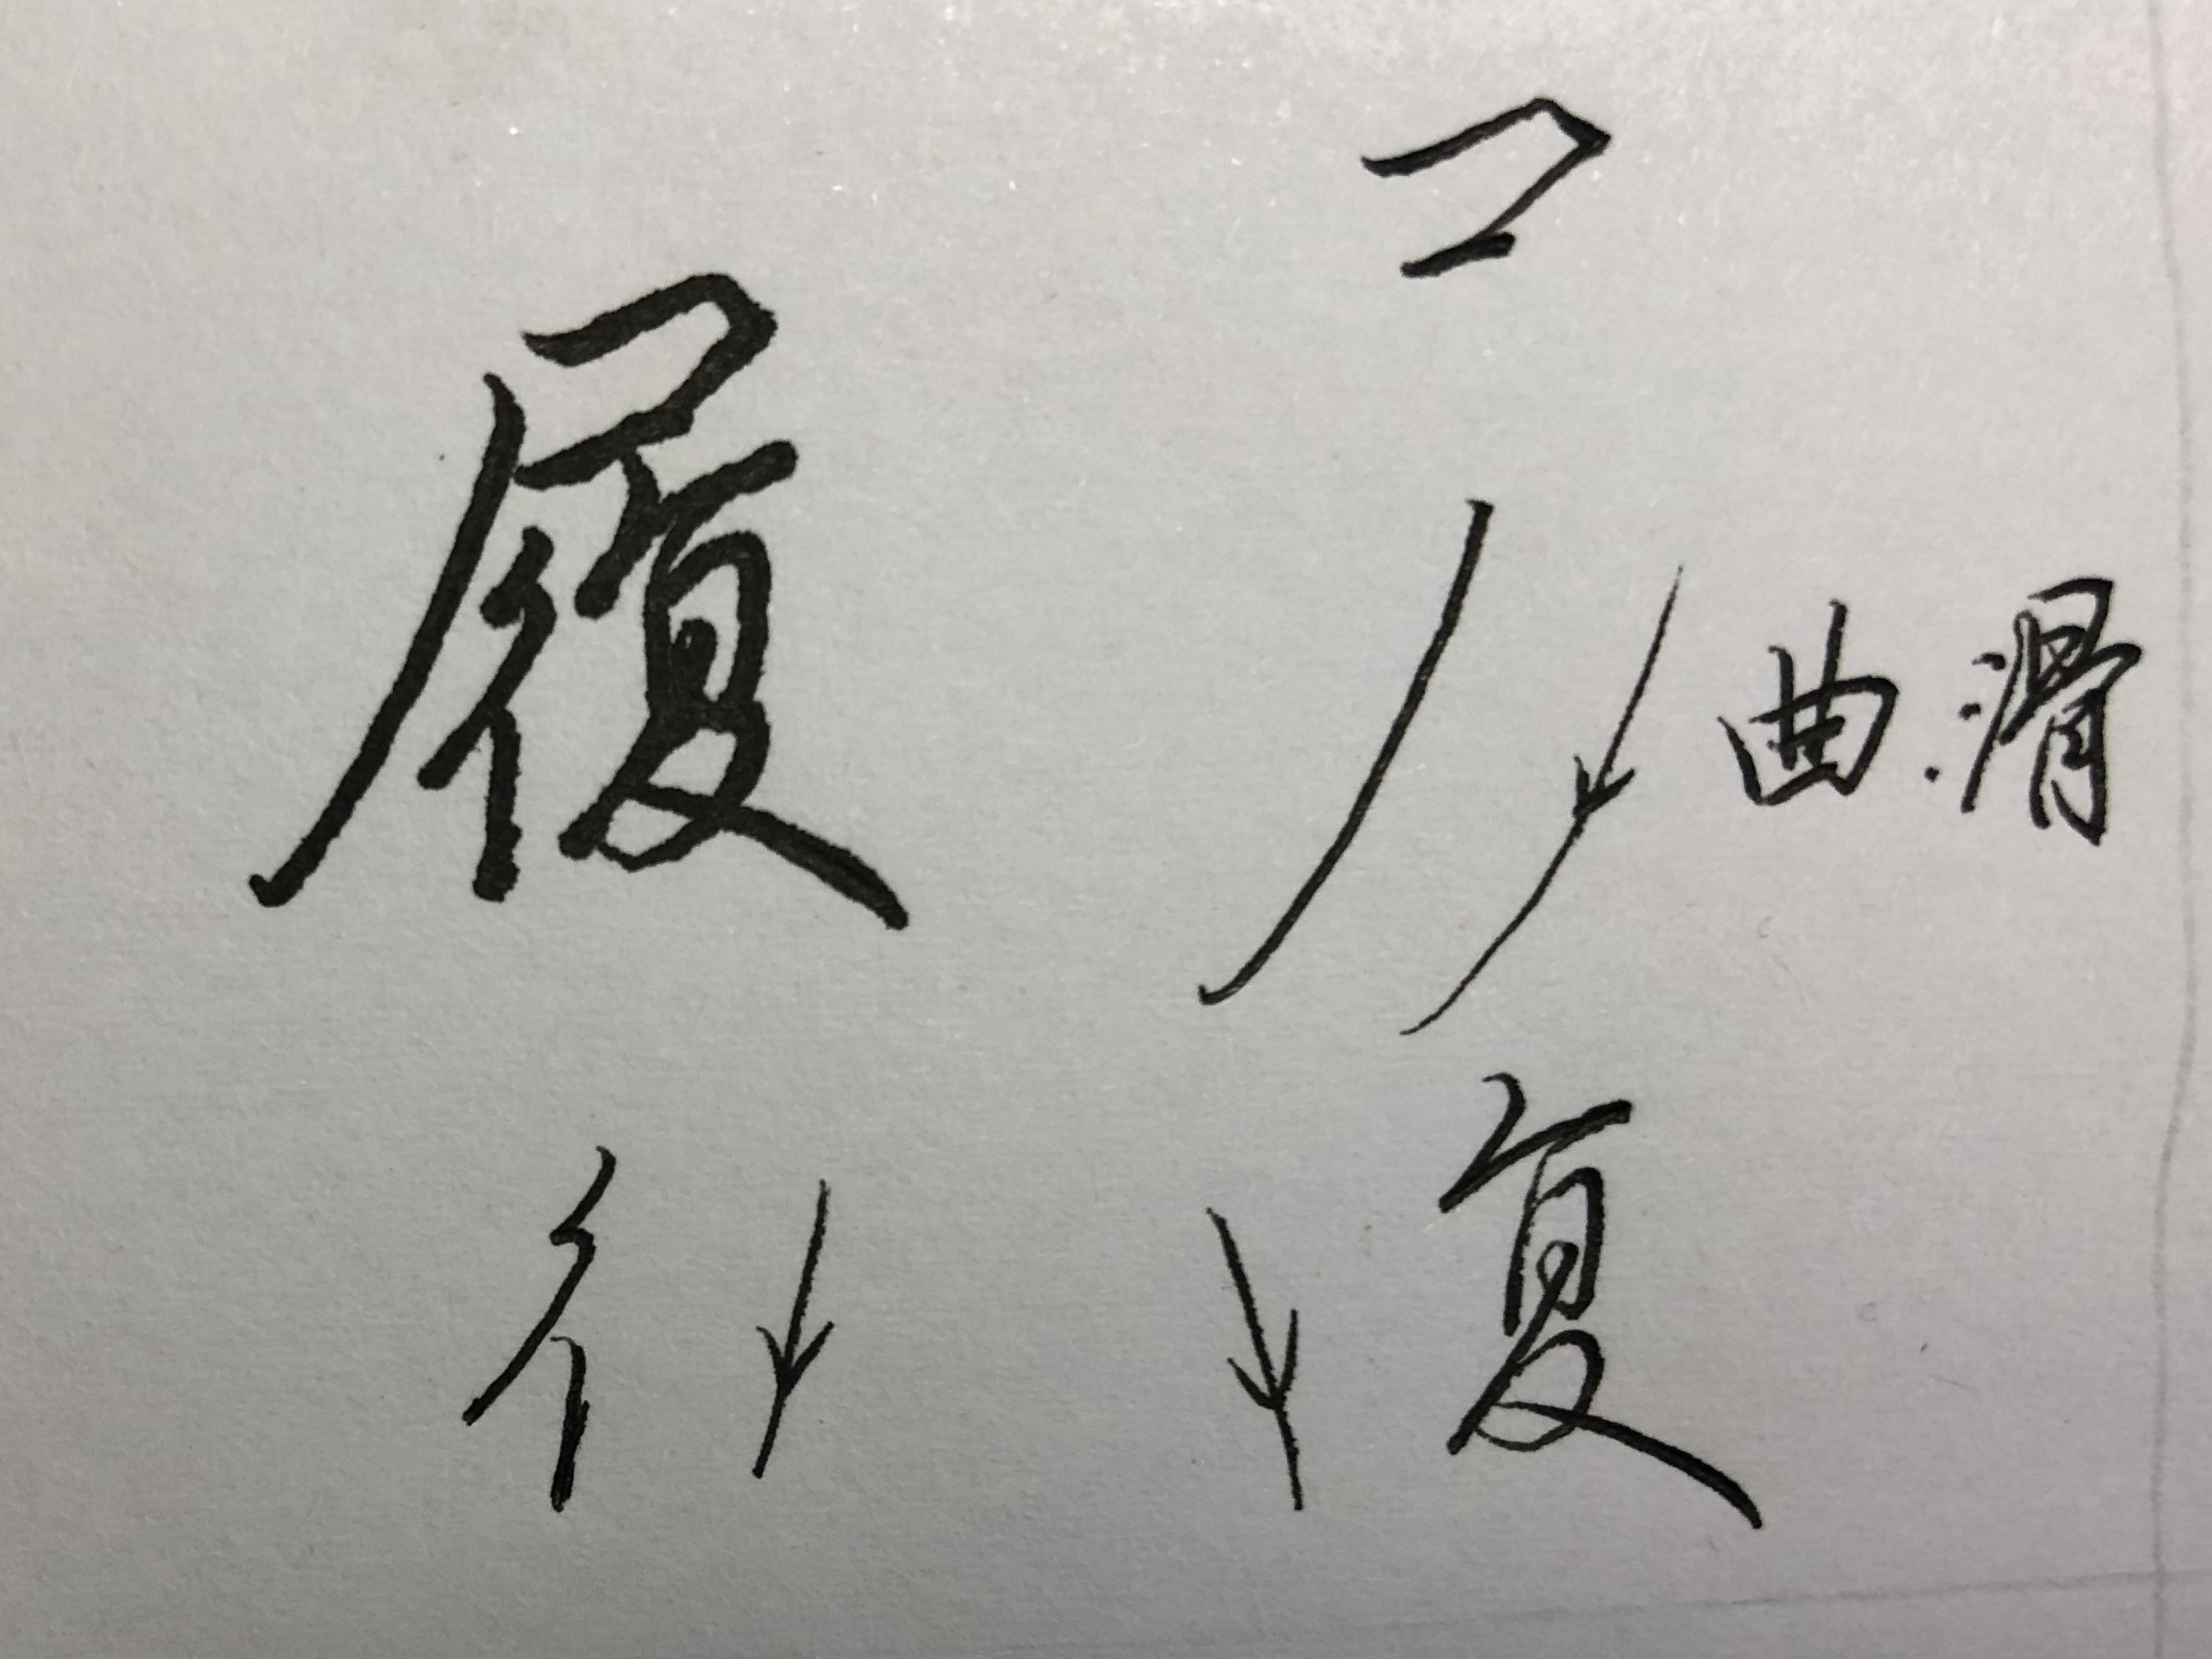 履
曲.滑
彳
复